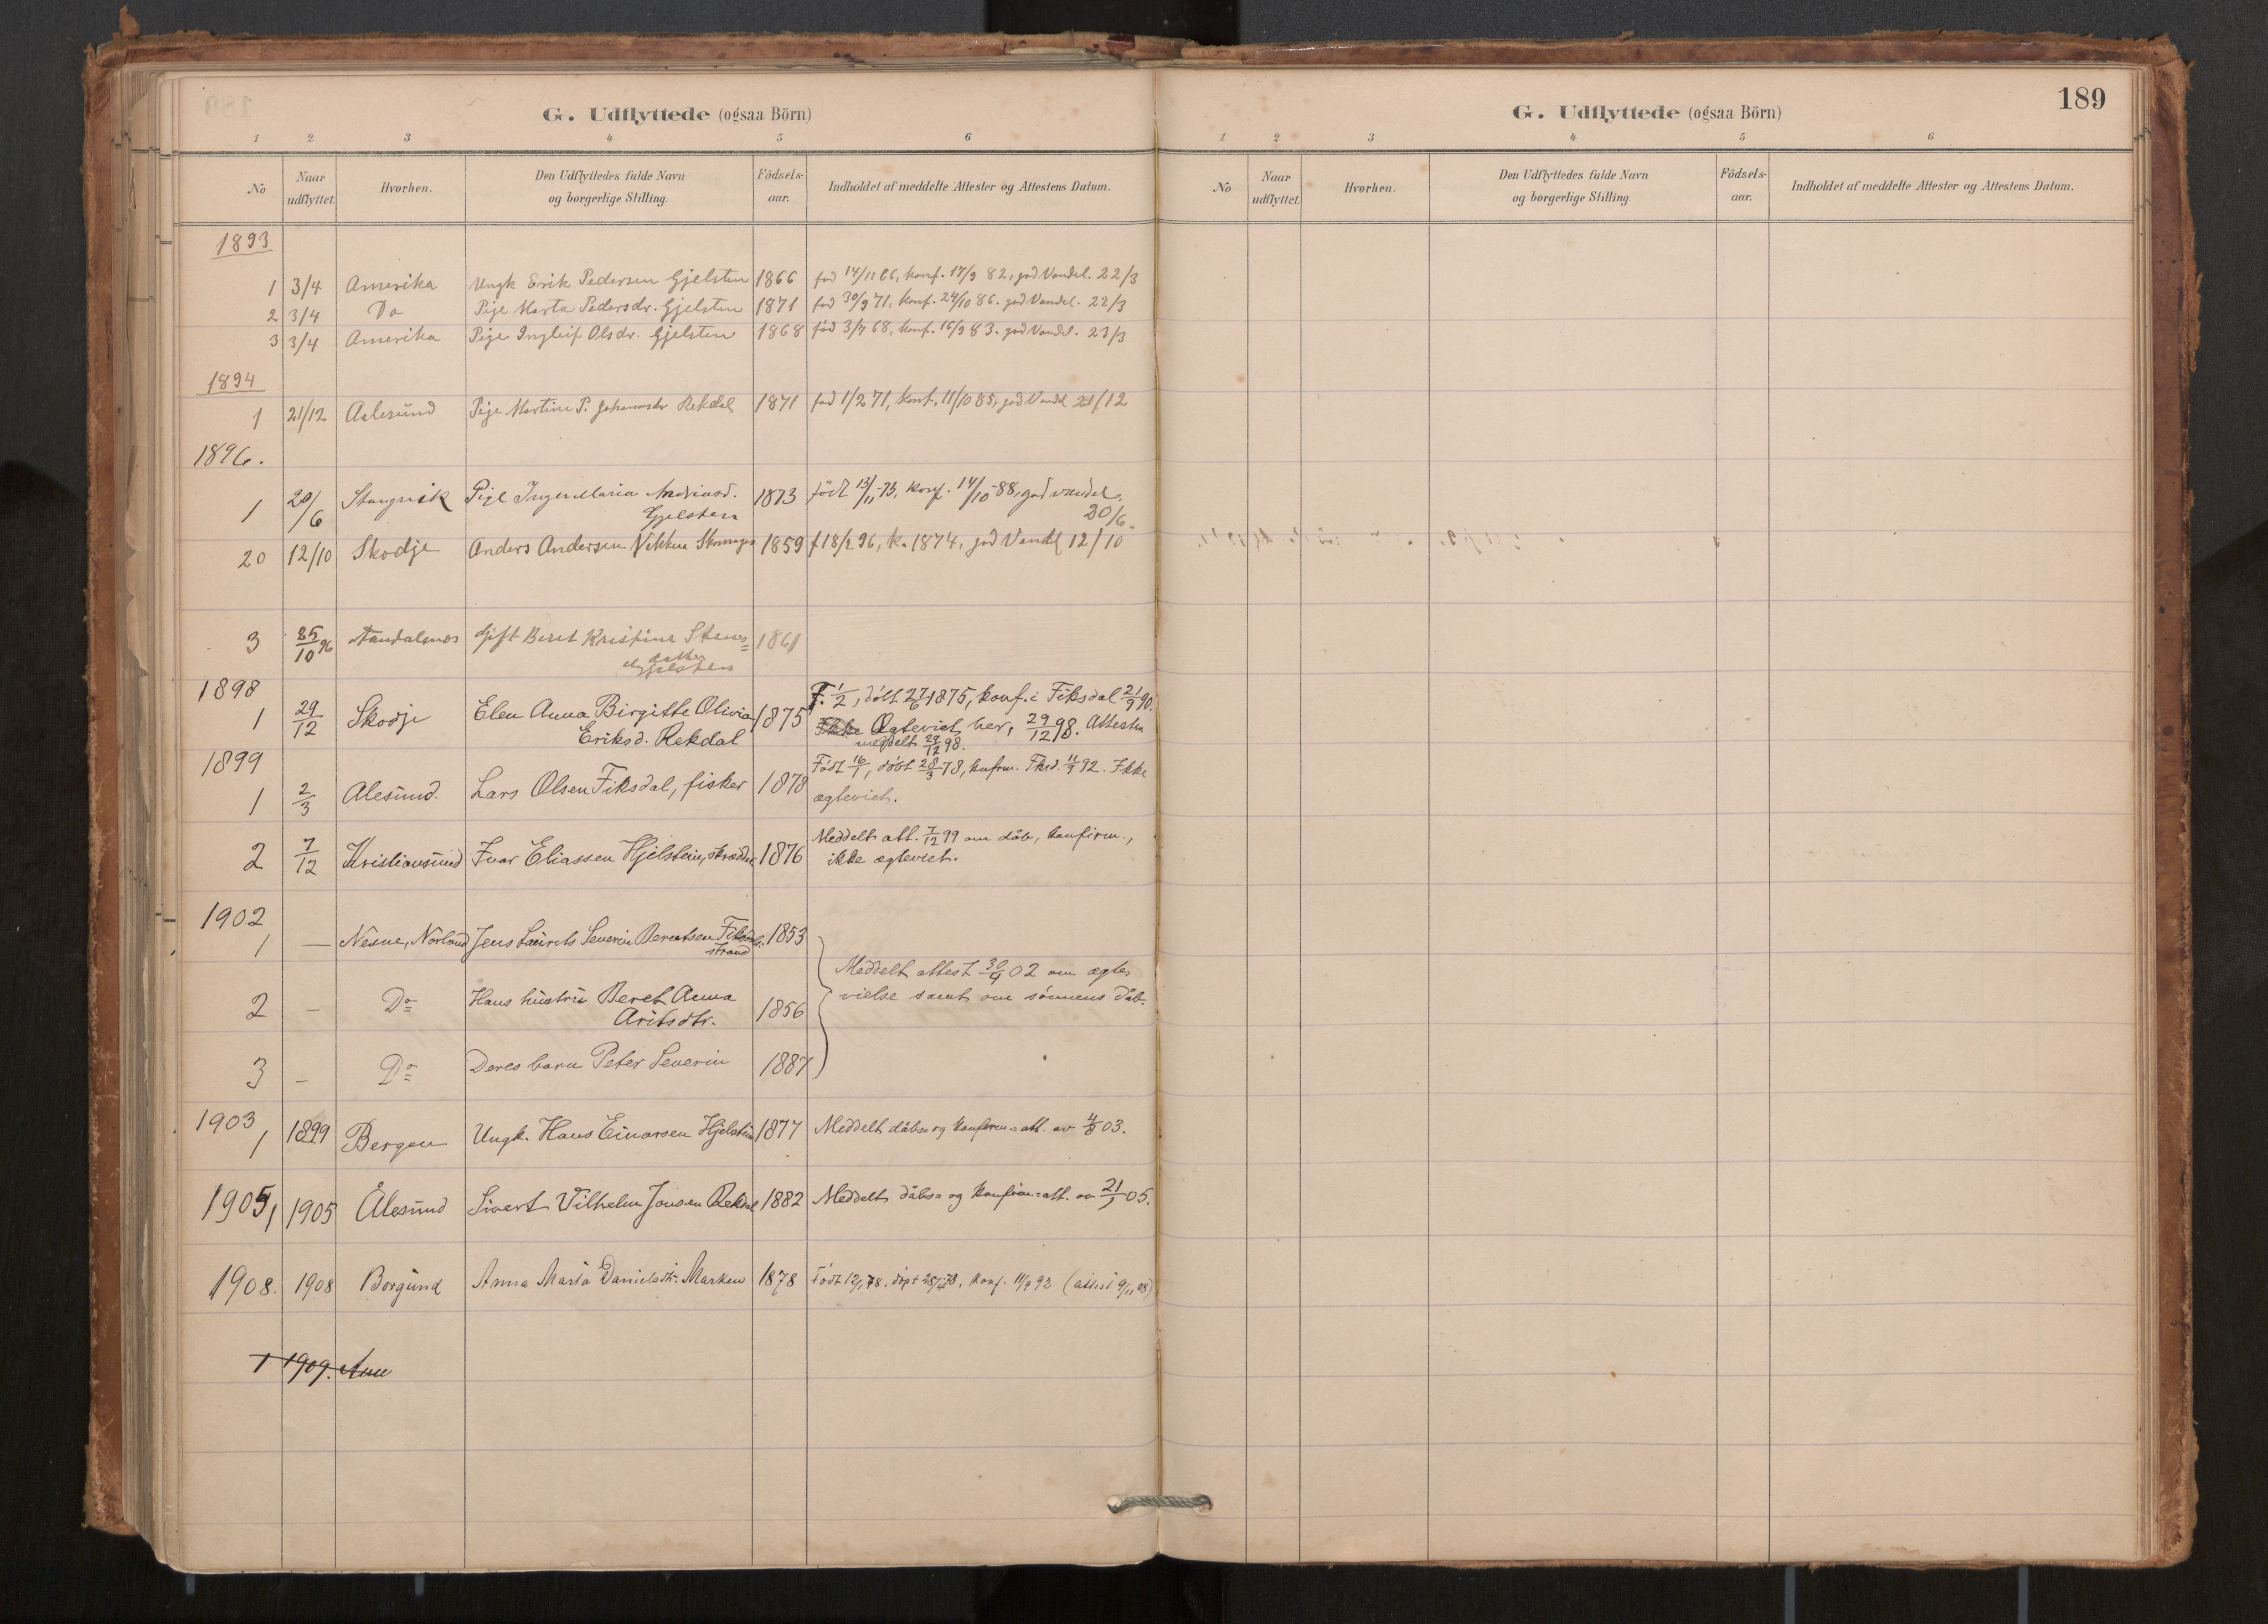 G. Udflyttede (ogsaa Börn)
1 2 3 4 5 6
No Naar udflyttet. Hvorhen. Den Udflyttedes fulde Navn og borgerlige Stilling. Födsels-aar. Indholdet af meddelte Attester og Attestens Datum.
1893
1 3/4 Amerika Ungk Erik Pedersen Gjelsten 1866 fød 14/11 66, konf. 17/9 82, god Vandel. 22/3
2 3/4 Do Pige Marta Pedersdr. Gjelsten 1871 fød 30/9 71, konf. 24/10 86. god Vandel. 22/3
3 3/4 Amerika Pige Ingleif Olsdr. Gjelsten 1868 fød 3/7 68, konf. 16/9 83. god Vandel. 23/3
1894
1 21/12 Aalesund Pige Martine P. Rekdal 1871 fød 1/2 71, konf. 11/10 85, god Vandel 21/12
1896.
1 20/6 Stangvik Pige Inger Maria Andriasd. 1873 født 13/11-73, konf. 14/10-88, god vandel,
Gjelsten 20/6.
20 12/10 Skodje Anders Andersen 1859 f 18/2 96, k. 1874, god Vandel 12/10
3 25/10 96 Gift Beret Kristine Stenes= 1861
datter
Gjelsten
1898
F. 1/2, døbt 27/6 1875, konf. i Fiksdal 21/9 90.
1 29/12 Skodje Elen Anna Birgitte Olivia 1875 Ikke Ægteviet her, 29/12 98. Attesten
Eriksd. Rekdal meddelt 29/12 98.
1899
Født 16/1, døbt 28/3 78, konfrm. Fksd. 11/9 92. Ikke
1 2/3 Alesund. Lars Olsen Fiksdal, fisker 1878 ægteviet.
2 7/12 Kristiansund Ivar Eliassen Hjelstein, skrædder 1876 Meddelt att. 7/12 99 om dåb, konfirm.,
ikke ægteviet.
1902
1 — Nesne, Norland Jens Laurits Severin Berentsen Fiksdals. 1853
strand
Meddelt attest 30/9 02 om ægte-
2 – Do Hans hustru Beret Anna 1856 vielse samt om sønnens dåb.
Aritsdtr.
3 – Do Deres barn Peter Severin 1887
1903
1 1899 Bergen Ungk. Hans Einarsen Hjelstein 1877 Meddelt dåbs= og konfirm=att. av 4/8 03.
1905, 1905 Ålesund Sivert Vilhelm Jonsen Rekdal 1882 Meddelt dåbs= og konfirm=att. av 21/ 05.
1908. 1908 Borgund Anna Maria Danielsdtr. Marken 1878 Født 12/1 78. døpt 28/4 78, konf. 11/9 92 (attest 9/11 08)
1 1909. Ane
G. Udflyttede (ogsaa Börn) 189
1 2 3 4 5 6
No Naar udflyttet. Hvorhen. Den Udflyttedes fulde Navn og borgerlige Stilling. Födsels-aar. Indholdet af meddelte Attester og Attestens Datum.